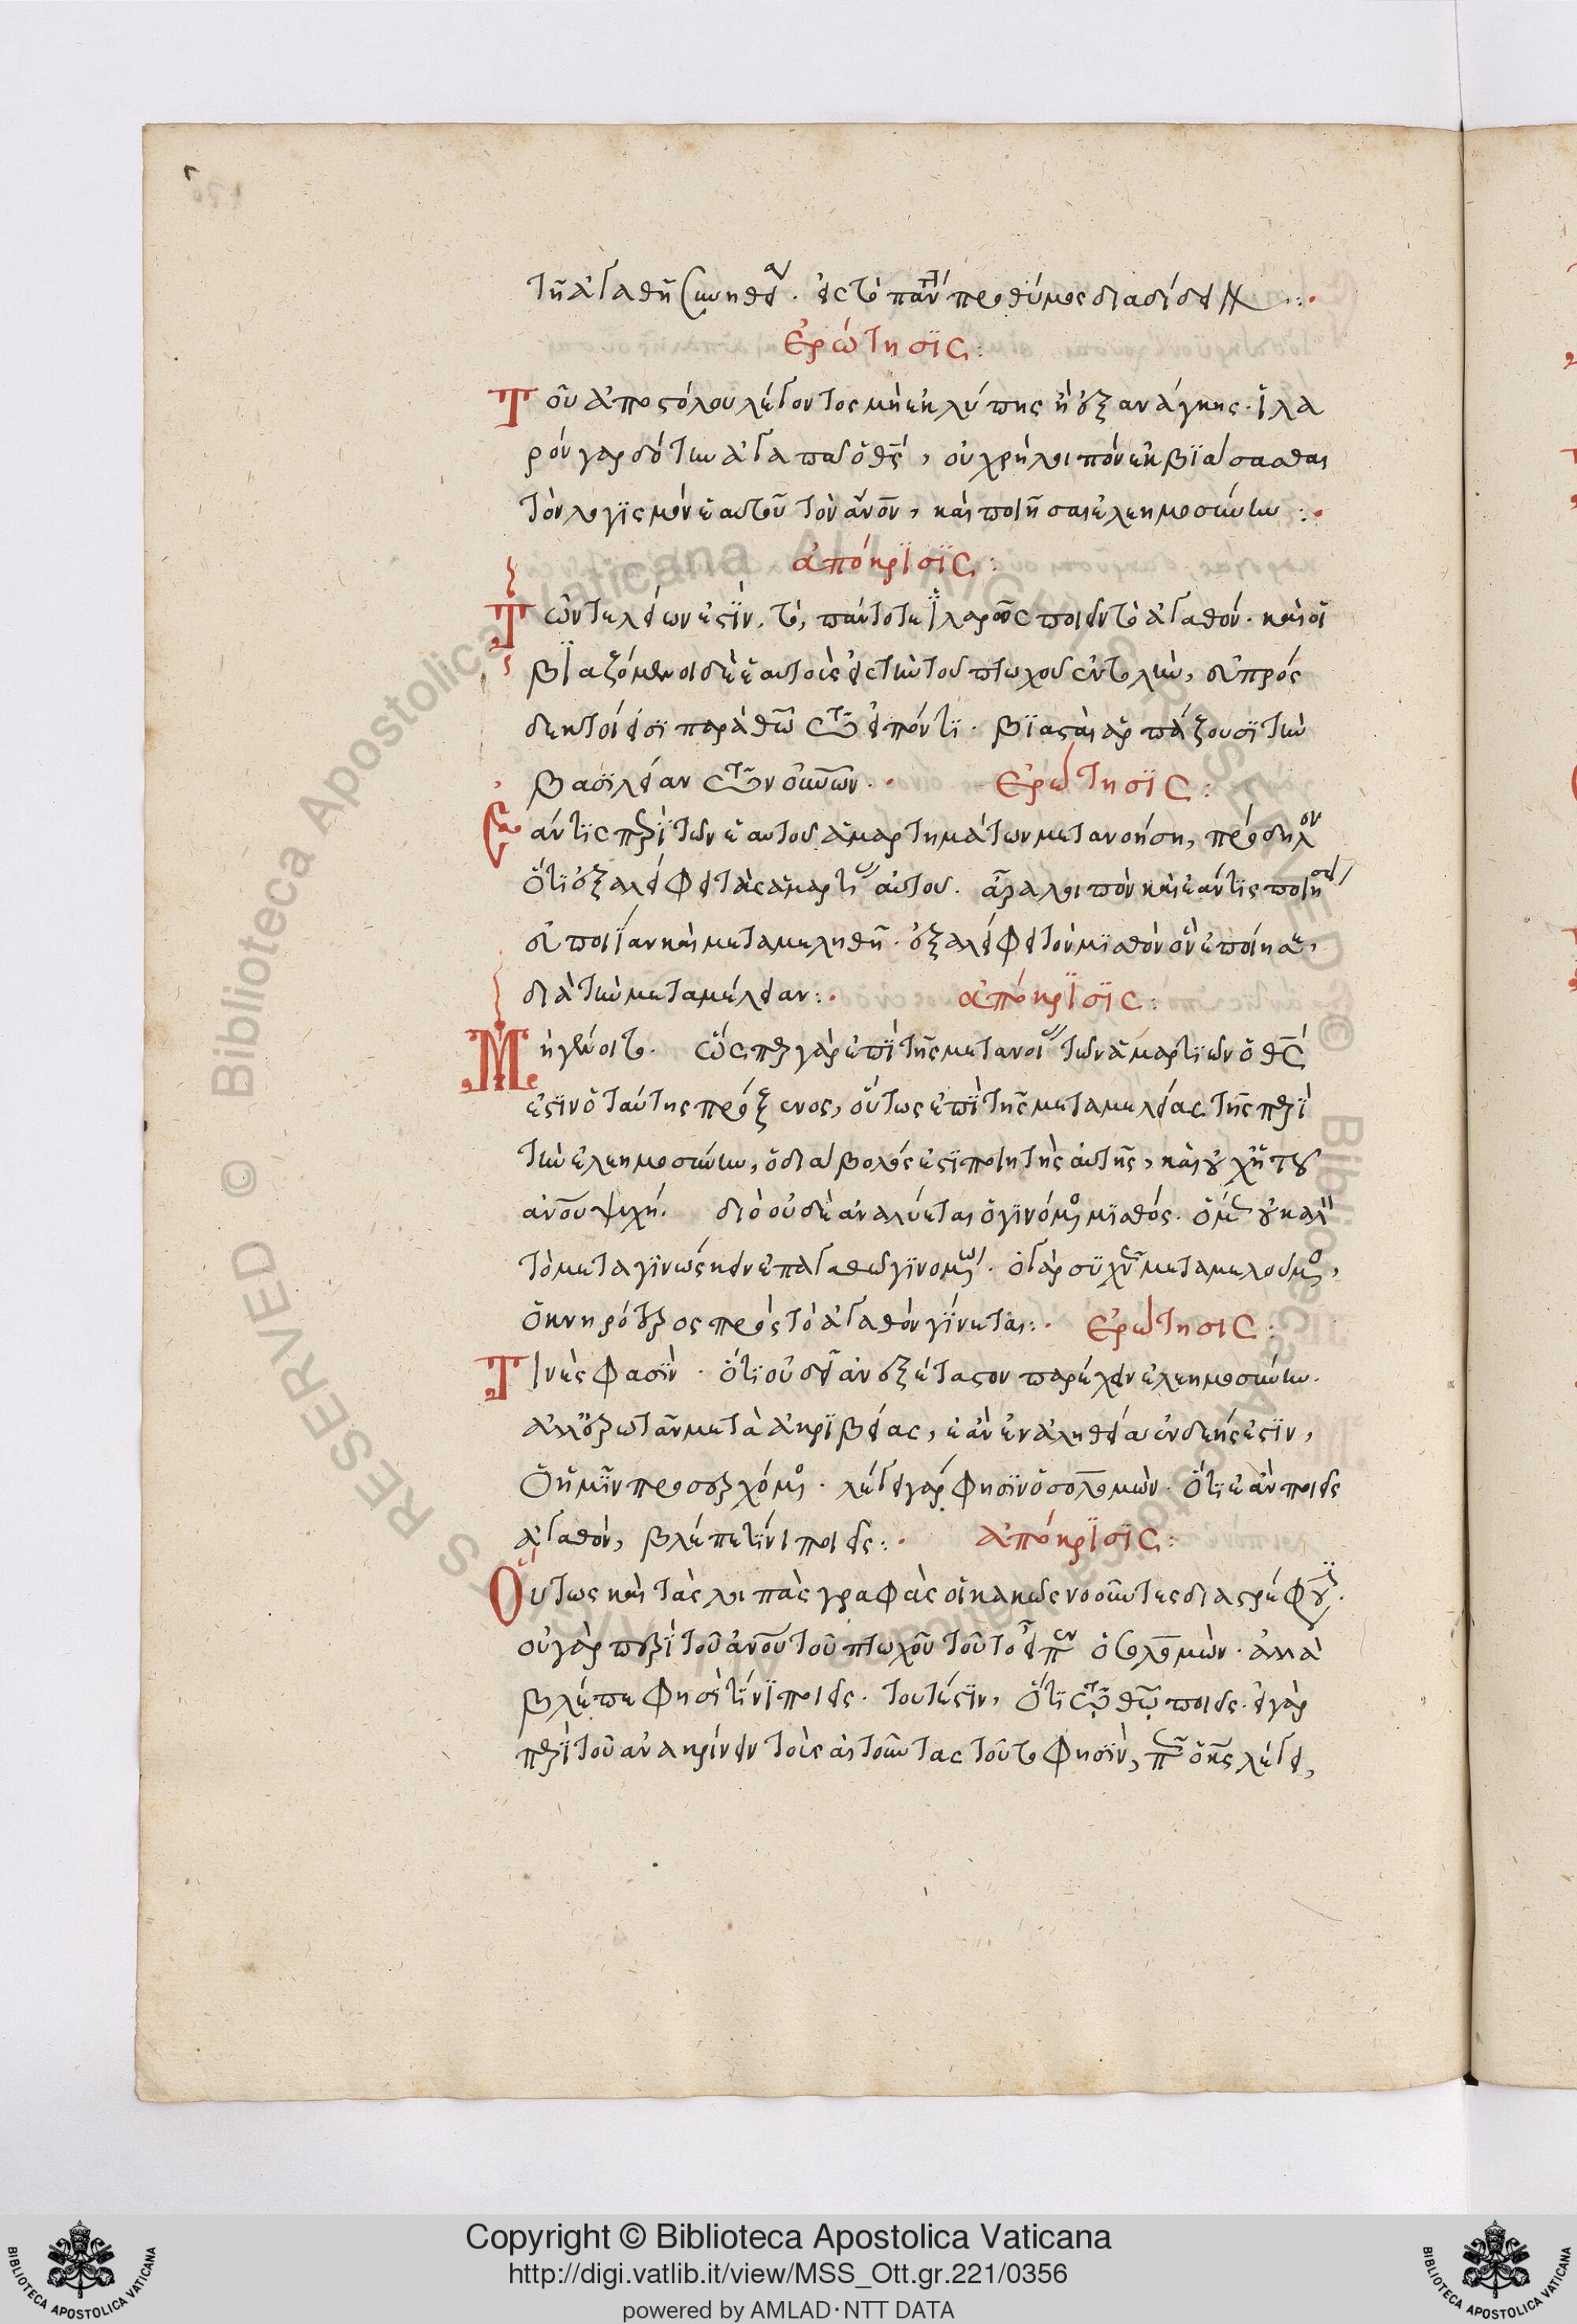 τῆ ἀγαθῆ συνηθεία. εἰς τὸ πάντη προθύμος διαδίδειν :·
ἐρώτησϊς:
Τοῦ ἀποστόλου λέγοντος μὴ ἐκ λύπης ἢ ἐξ ανάγκης. ἱλα
ρὸν γαρ δότην ἀγαπᾶ ὁ θς, οὐ χρὴ λοιπὸν ἐκβϊάσασθαι
τὸν λογϊσμὸν ἑαυτοῦ τὸν ἄνον, καὶ ποιῆσαι ἐλεημοσύνην :·
ἀπόκρϊσϊς:
Τῶν τελείων ἐστὶν, τὸ, πάντοτε ἱλαρῶς ποιεῖν τὸ ἀγαθόν. καὶ οἱ
βϊαζόμενοι δὲ ἑαυτοὺς εἰς τὴν τοῦ πτωχοῦ ἐντολὴν, εὐπρόσ
δεκτοί εἰσϊ παρὰ θω τῶ εἰπόντϊ. βϊασταὶ ἁρπάζουσϊ τὴν
βασϊλείαν τῶν οὐνῶν. · ἐρώτησϊς:
Ἐάν τϊς περὶ τῶν ἑαυτοῦ ἁμαρτημάτων μετανοήση, πρόδηλον
ὅτϊ ἐξαλείφει τὰς ἁμαρτίας αὐτοῦ. ἆρα λοιπὸν καὶ ἐάν τϊς ποιήσει
εὐποιΐαν καὶ μεταμεληθῆ. ἐξαλείφει τὸν μϊσθὸν ὃν ἐποίησε,
διὰ τὴν μεταμέλειαν :· ἀπόκρϊσϊς:
Μὴ γένοιτο. ὥσπερ γὰρ ἐπὶ τῆς μετανοίας τῶν ἁμαρτϊῶν ὁ θς
ἐστϊν ὁ ταύτης πρόξενος, οὕτως ἐπὶ τῆς μεταμελείας τῆς περὶ
τὴν ἐλεημοσύνην, ὁ διάβολός ἐστϊ ποιητὴς αὐτῆς, καὶ οὐχῒ του
ανου ψυχή. διὸ οὐδὲ αναλύεται ὁ γϊνόμενος μϊσθός. ὅμως οὐ καλὸν
τὸ μεταγϊνώσκειν ἐπ αγαθῶ γϊνομένω. ὁ γὰρ συχνῶς μεταμελούμενος,
ὀκνηρότερος πρὸς τὸ ἀγαθὸν γίνεται :· ἐρώτησις:
Τινές φασϊν. ὅτϊ οὐ δεῖ ἀνεξέταστον παρέχειν ἐλεημοσύνην.
ἀλλ' ἐρωτᾶν μετὰ ἀκρϊβείας, ἐὰν ἐν ἀληθεία ἐνδεής ἐστϊν,
ὁ ἡμῖν προσερχόμενος. λέγει γάρ φησϊν ὁ σολομών. ὅτϊ ἐὰν ποιεῖς
ἀγαθὸν, βλέπε τίνι ποιεῖς :· ἀπόκρϊσϊς:
Οὕτως καὶ τὰς λοιπὰς γραφὰς οἱ κακῶς νοοῦντες διαστρέφουσϊ.
οὐ γὰρ περὶ τοῦ ἀνου τοῦ πτωχοῦ τοῦτο εἶπεν ὁ σολομών. ἀλλὰ
βλέπε φησὶ τίνϊ ποιεῖς. τουτέστϊν, ὅτϊ τῶ θω ποιεῖς. εἰ γὰρ
περὶ τοῦ ανακρίνειν τοὺς αἰτοῦντας τοῦτό φησϊν, πῶς ὁ κς λέγει,
Copyright © Biblioteca Apostolica Vaticana
http://digi.vatlib.it/view/MSS_Ott.gr.221/0356
powered by AMLAD·NTT DATA